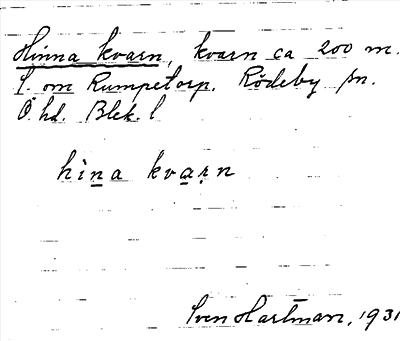 Hinna kvarn, kvarn ca 200 m.
S. om Rumpetorp. Rödeby sn.
Ö. hd. Blek. l
hina kvaṛn
Sven Hartman, 1931